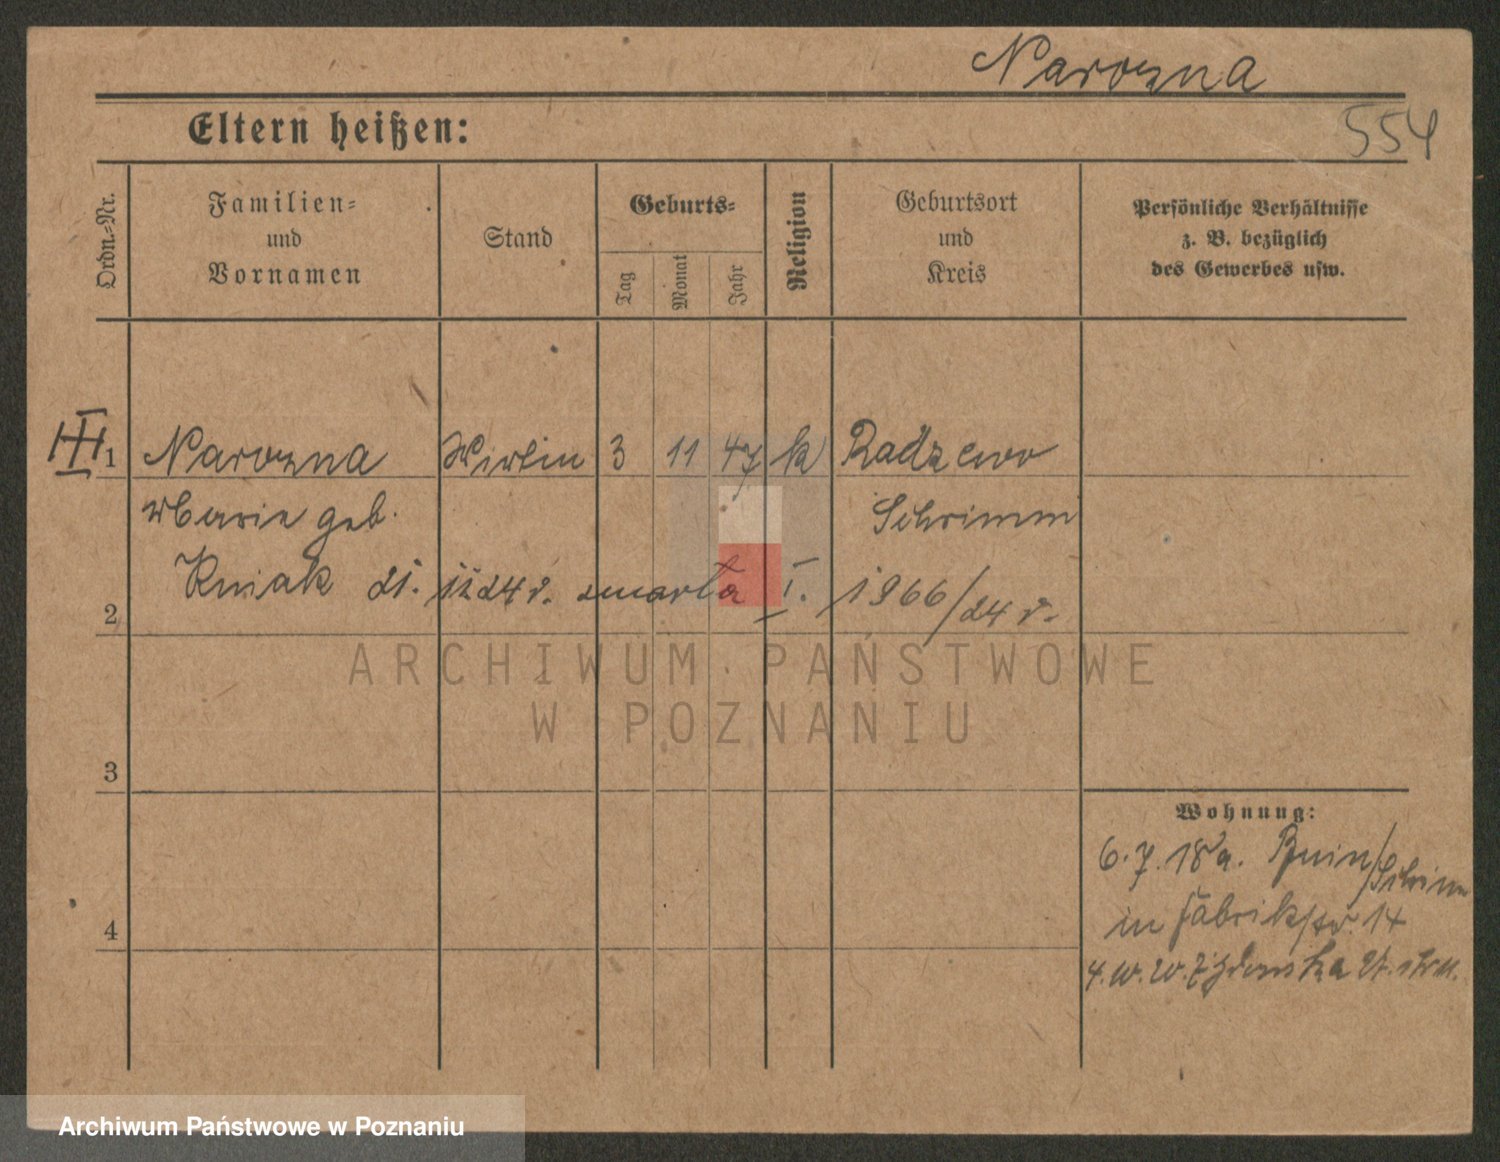 Narozna
554
Eltern heißen:
Ordn.-Nr.
Familien-
und
Vornamen
Stand
Geburts-
Tag
Monat
Jahr
Religion
Geburtsort
und
Kreis
Persönliche Verhältnisse
z. B. bezüglich
des Gewerbes usw.
1 Narozna Wirtin 3 11 47 k Radzewo
Marie geb. Schrimm
2 Kniak zmarła I. 1966/24 r.
ARCHIWUM PAŃSTWOWE
W POZNANIU
3
4
Wohnung:
6.7.18 a. Bnin/Schrimm
in Fabrikstr. 14
Archiwum Państwowe w Poznaniu